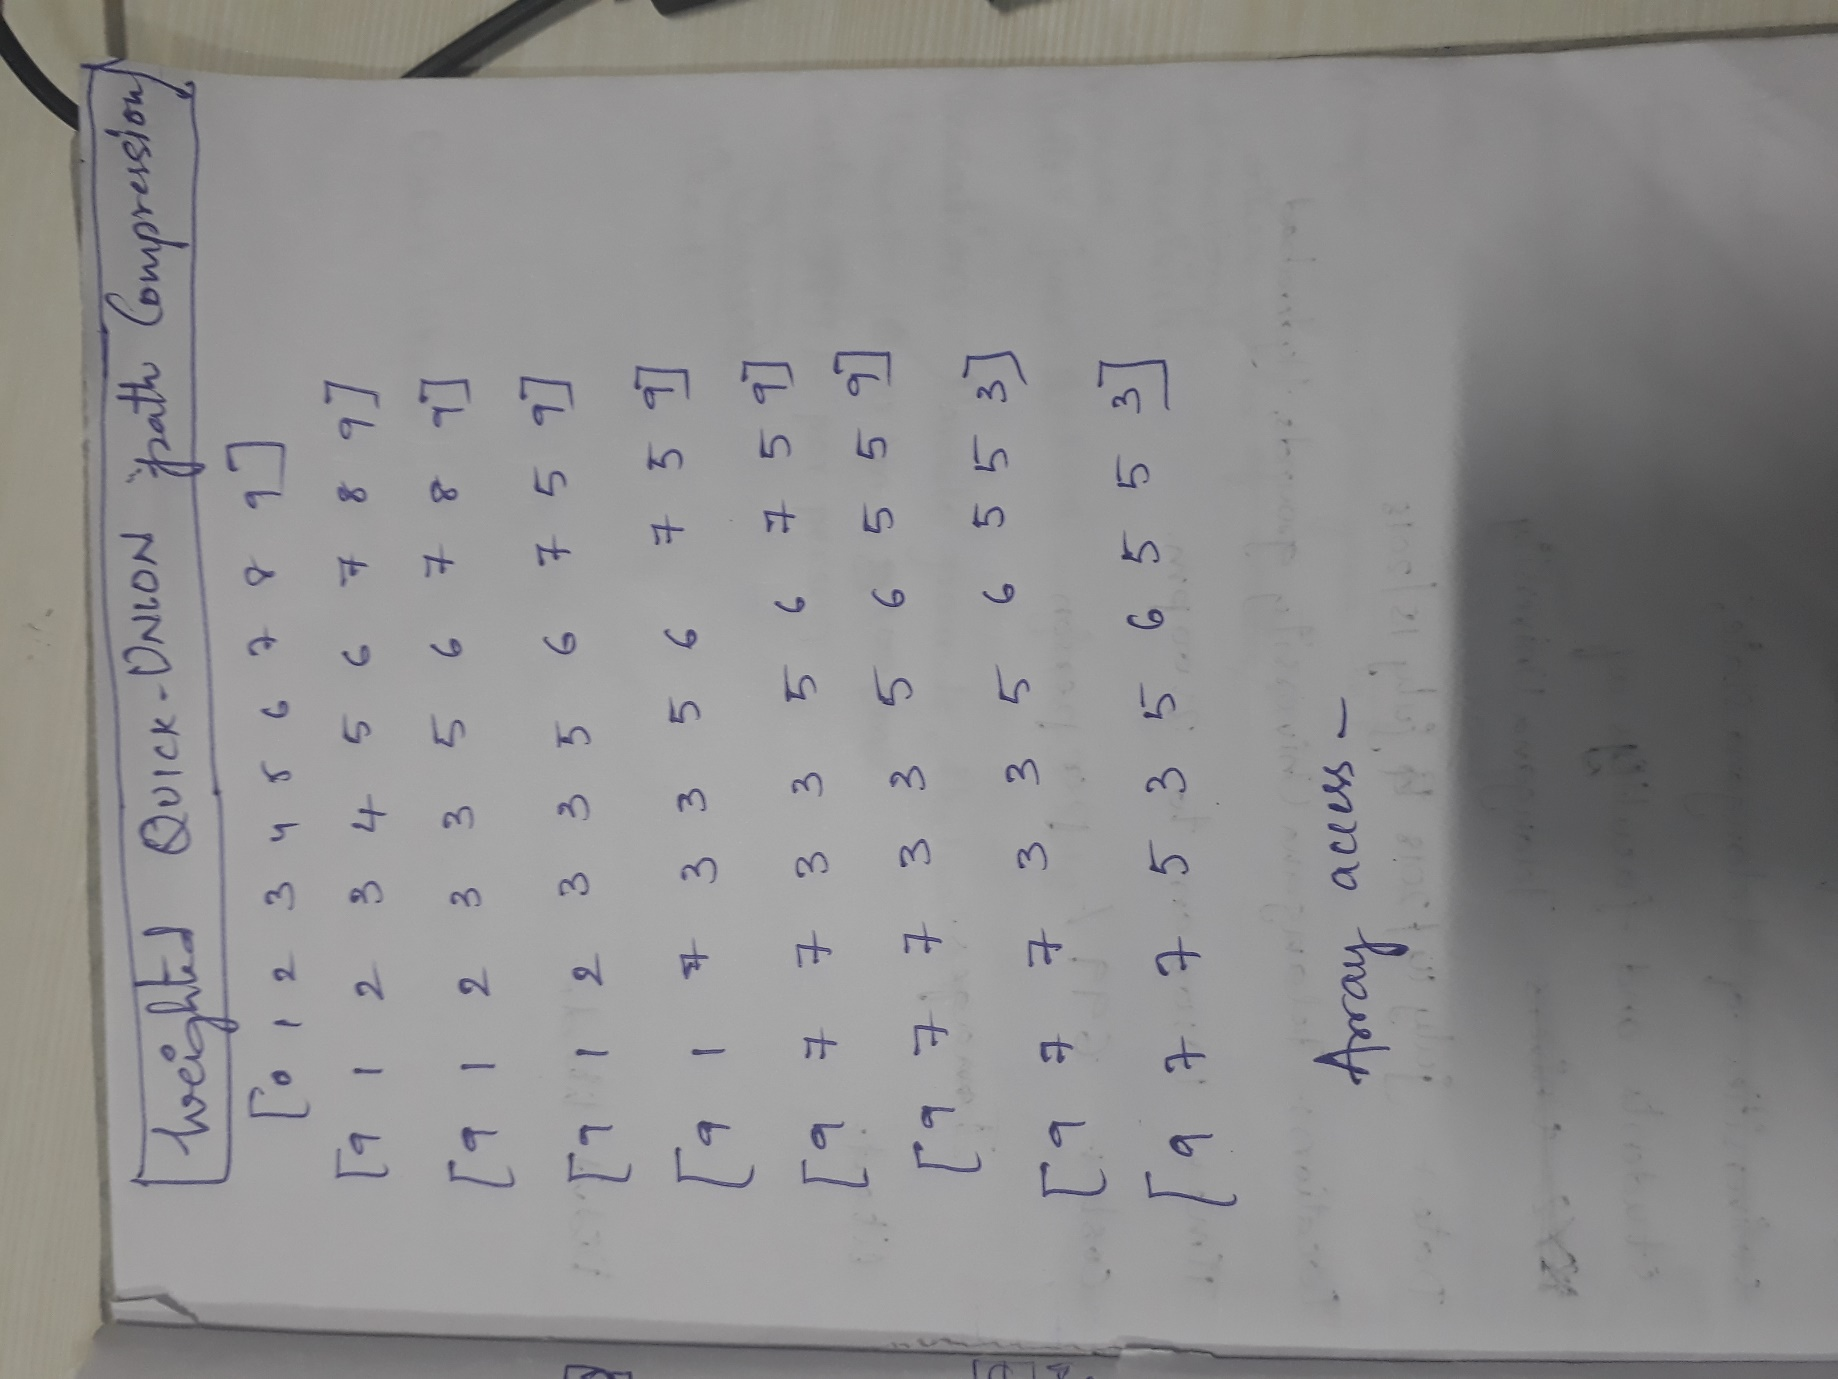 Weighted QUICK-UNION path Compression
[0 1 2 3 4 5 6 7 8 9]
[9 1 2 3 4 5 6 7 8 9]
[9 1 2 3 3 5 6 7 8 9]
[9 1 2 3 3 5 6 7 5 9]
[9 1 7 3 3 5 6 7 5 9]
[9 7 7 3 3 5 6 7 5 9]
[9 7 7 3 3 5 6 5 5 9]
[9 7 7 3 3 5 6 5 5 3]
[9 7 7 5 3 5 6 5 5 3]
Array access -